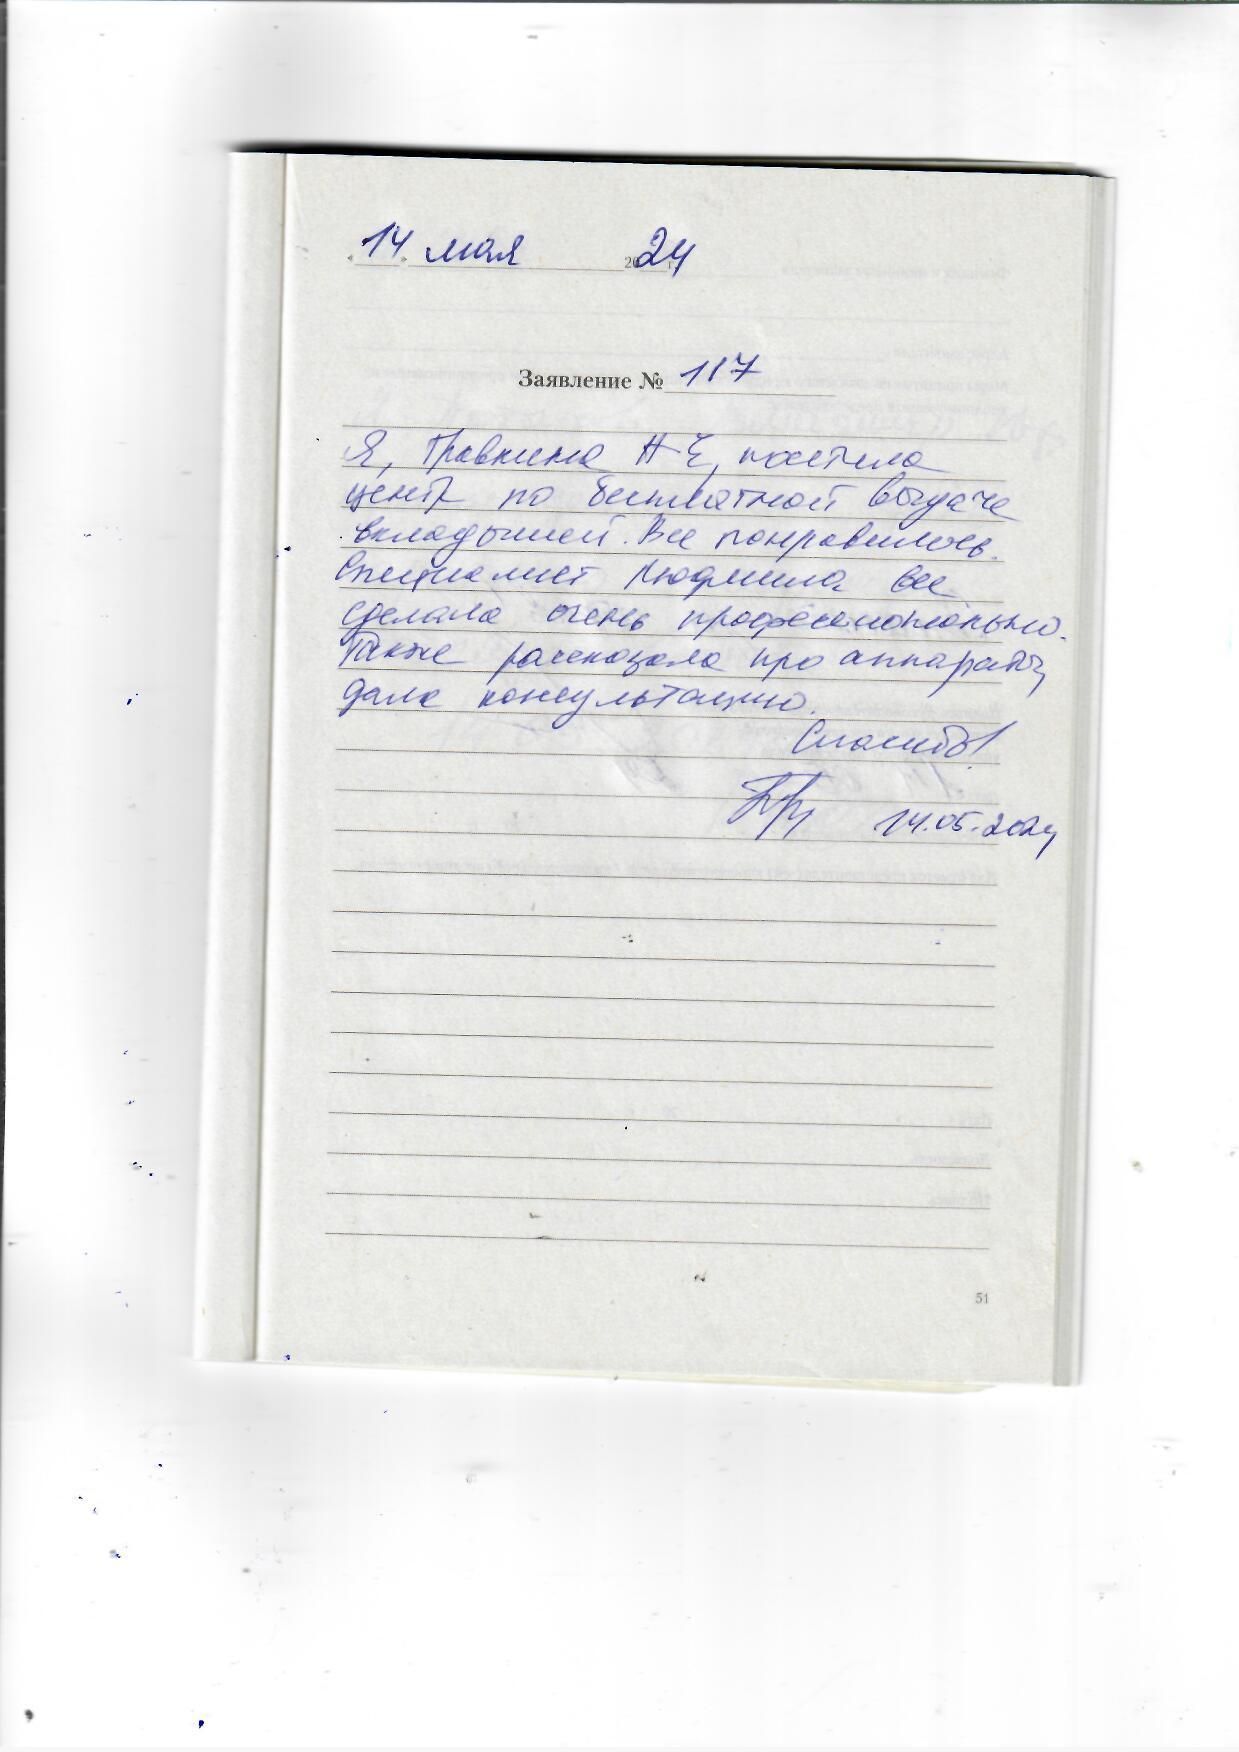 «14» мая 2024
Заявление № 117
Я, Правкина Н Е, посетила
центр по бесплатной выдаче
вкладышей. Все понравилось.
Специалист Людмила все
сделала очень профессионально.
Также рассказала про аппараты,
дала консультацию.
Спасибо!
14.05.2024
51